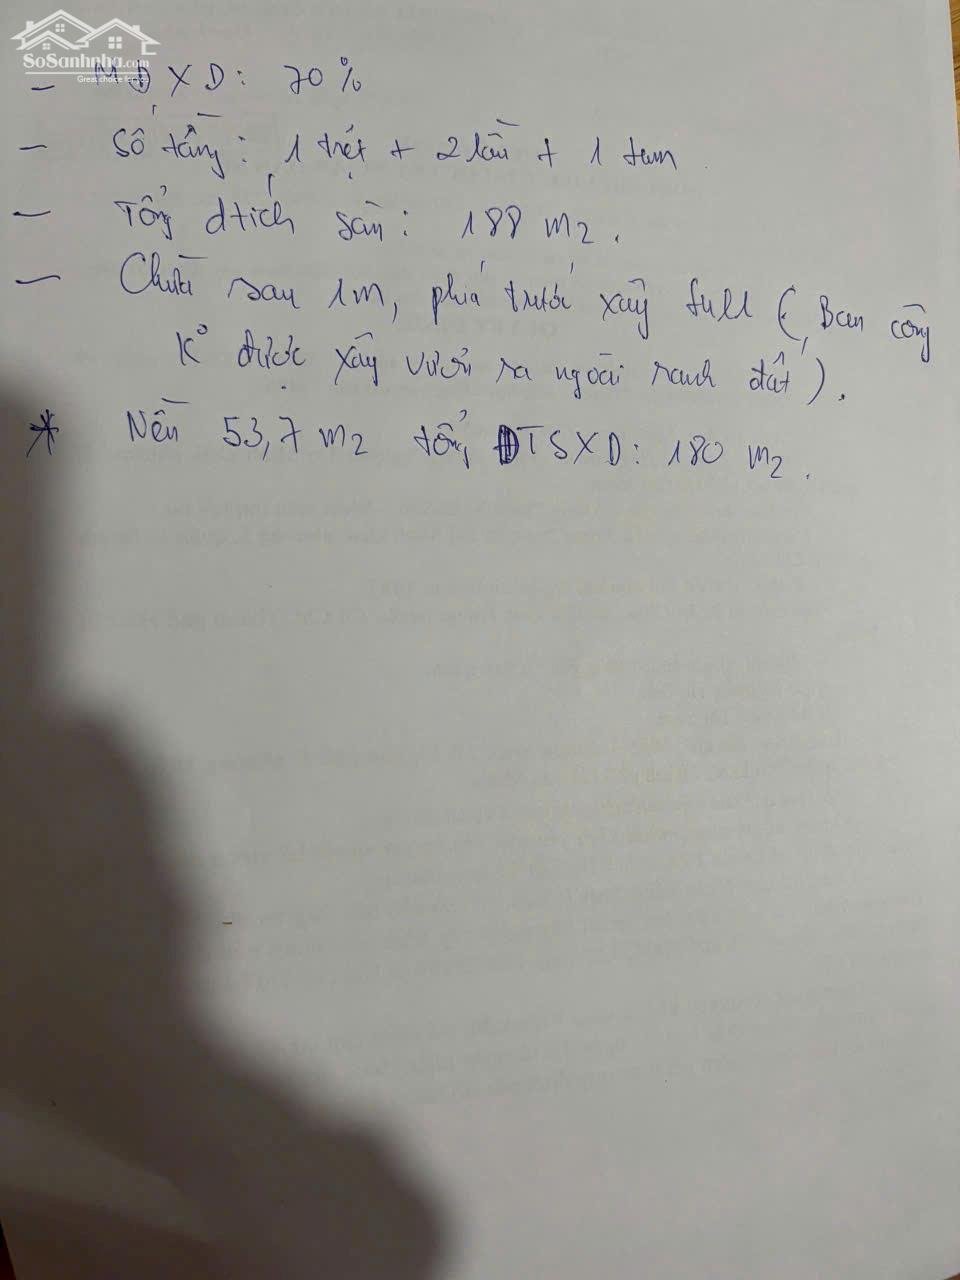 SoSanhnha.com
Great choice for you
- MĐXD: 70%
- Số tầng: 1 trệt + 2 lầu + 1 tum
- Tổng dtích sàn: 188 m2.
- Chừa sau 1m, phía trước xây full (Ban công
k° được xây vươn ra ngoài ranh đất).
* Nền 53,7 m2 tổng DTSXD: 180 m2.